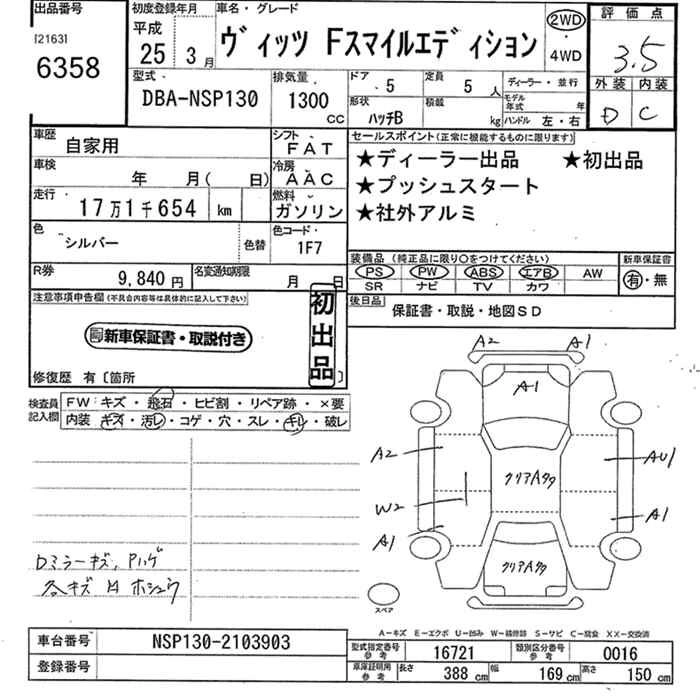 出品番号
[2163]
6358
初度登録年月
平成
25 3月
車名・グレード
ヴィッツ Fスマイルエディション
2WD
・
4WD
評価点
3.5
外装 内装
D C
型式
DBA-NSP130
排気量
1300
CC
ドア
5
定員
5 人
ディーラー・並行
形状
ハッチB
積載
kg
モデル年式
年
ハンドル 左・右
車歴
自家用
シフト
FAT
車検
年 月( 日)
冷房
AAC
走行
17万1千654 km
燃料
ガソリン
色
シルバー
色替
色コード
1F7
R券
9,840 円
名変通知期限
月 日
セールスポイント(正常に機能するものに限ります)
★ディーラー出品 ★初出品
★プッシュスタート
★社外アルミ
装備品 (純正品に限り○をつけてください)
PS PW ABS エアB AW
SR ナビ TV カワ
新車保証書
有・無
後日品
保証書・取説・地図SD
注意事項申告欄(不具合内容等は具体的に記入して下さい)
新車保証書・取説付き
初出品
修復歴 有〔箇所 〕
検査員記入欄
FW: キズ・飛石・ヒビ割・リペア跡・×要
内装 キズ・汚レ・コゲ・穴・スレ・キレ・破レ
Dミラーキズ, Pハゲ
各キズ H ホシュウ
A2 A1
A1
A2
クリアハク
AU1
W2
A1
A1
クリアハク
スペア
A-キズ E-エクボ U-凹み W-補修跡 S-サビ C-腐食 XX-交換済
車台番号
NSP130-2103903
登録番号
型式指定番号
参考
16721
類別区分番号
参考
0016
車庫証明用
参考
長さ 388 cm
幅 169 cm
高さ 150 cm